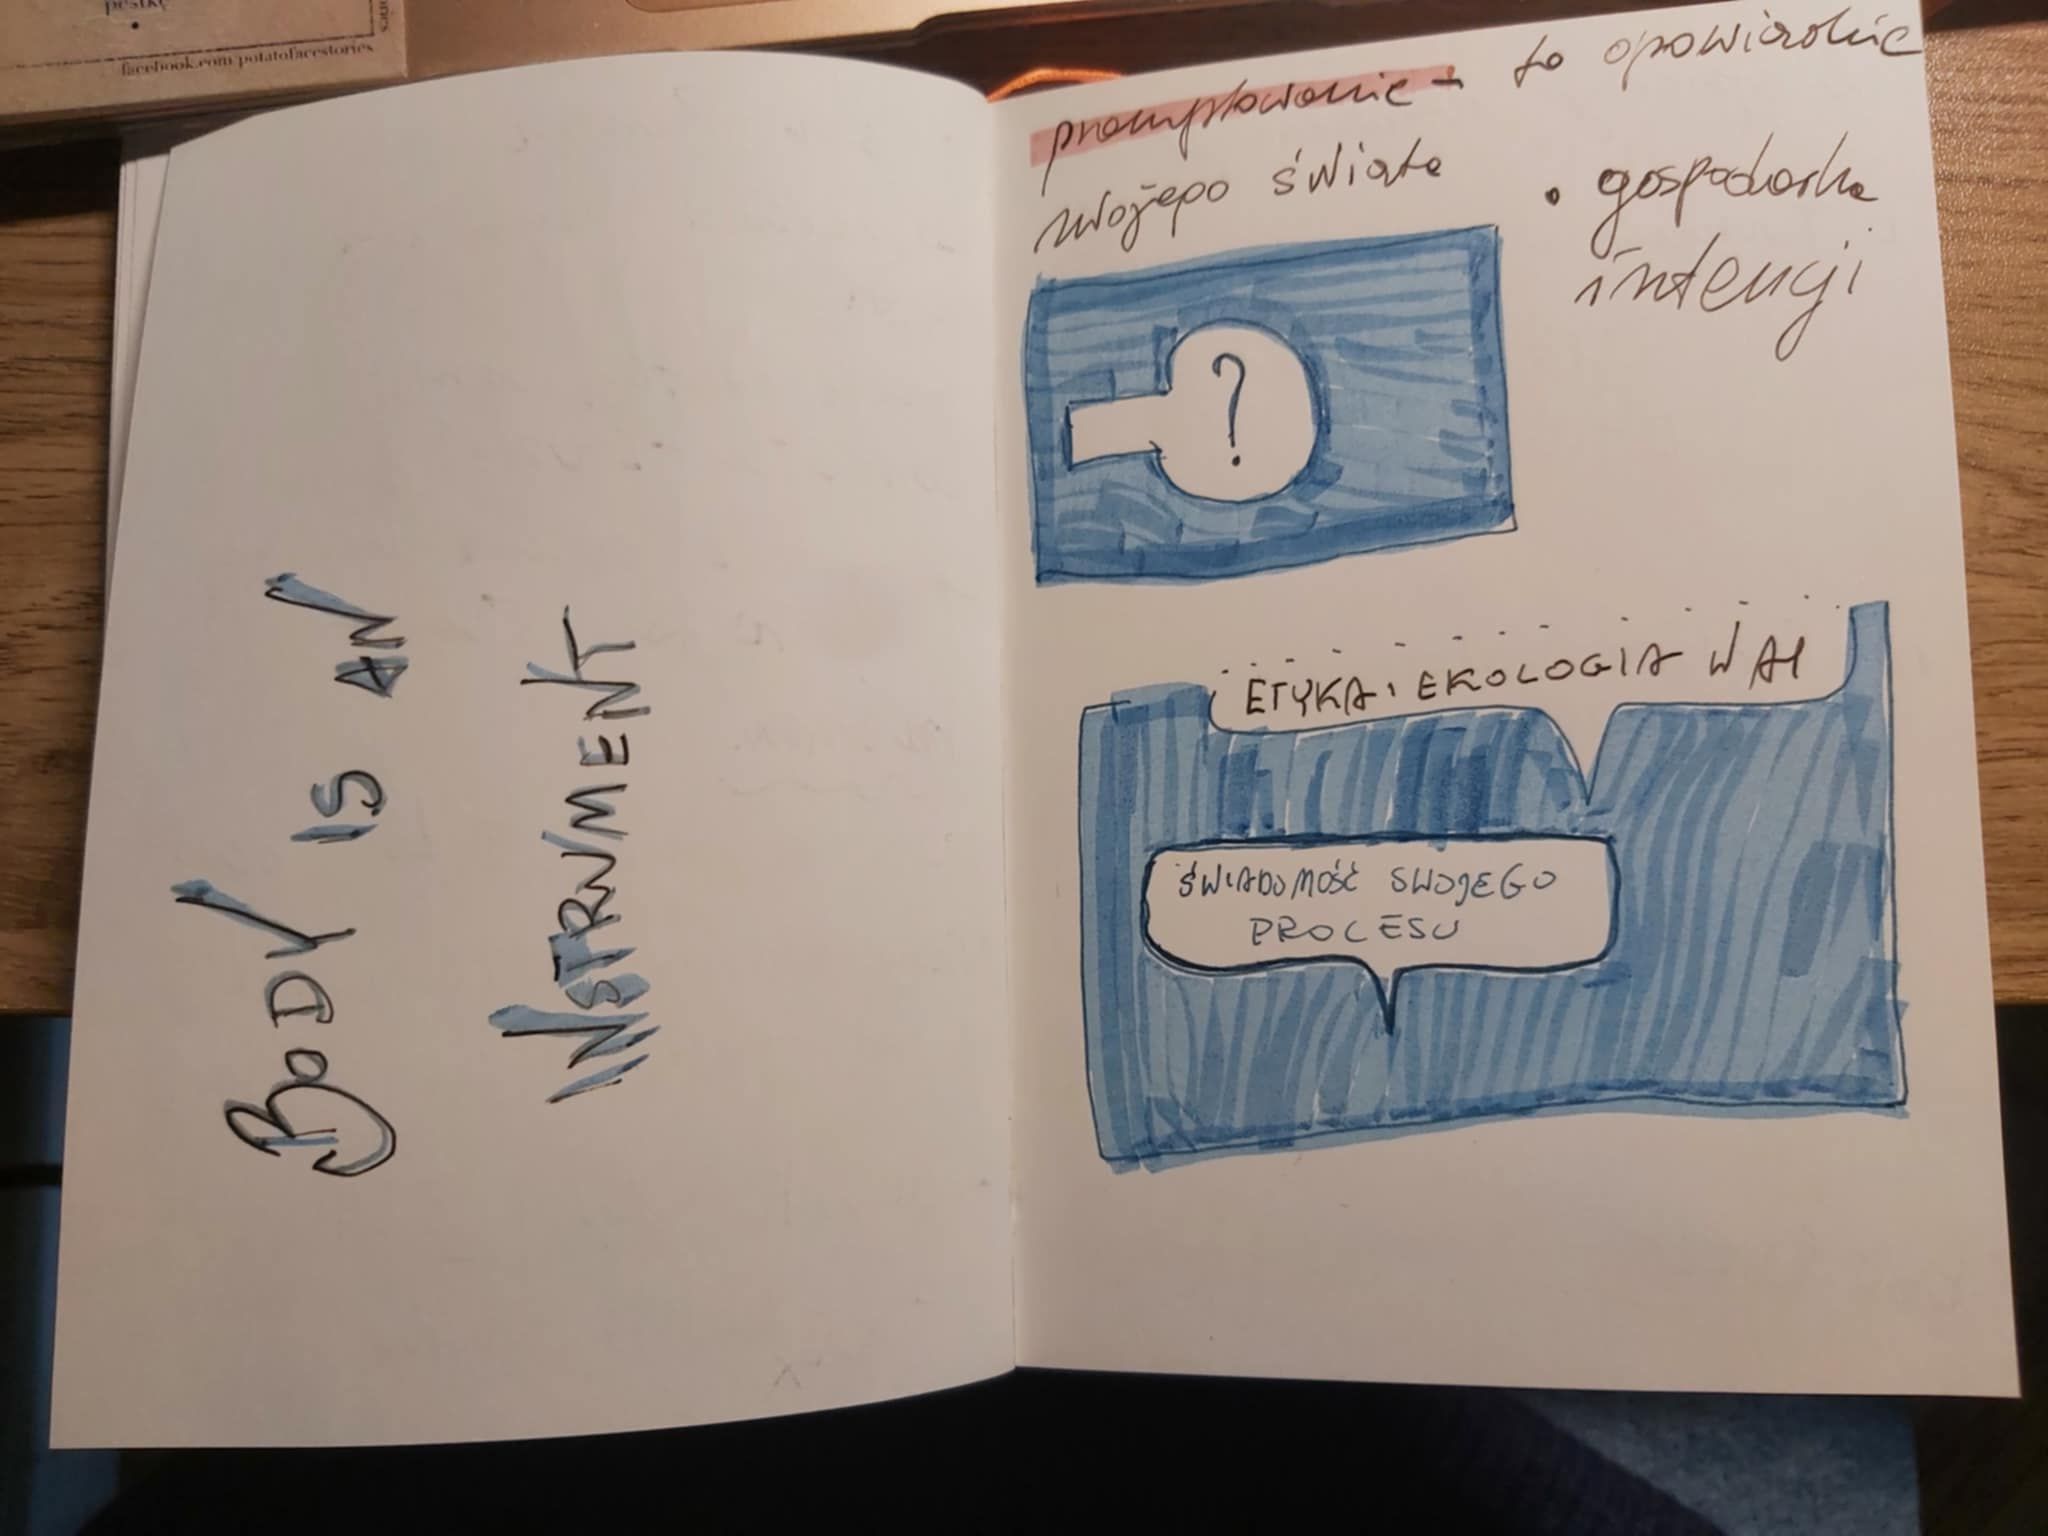 pestkę
facebook.com/potatofacestories
BODY IS AN
INSTRUMENT
promptowanie - to opowiadanie
swojego świata
• gospodarka
intencji
?
ETYKA i EKOLOGIA W AI
ŚWIADOMOŚĆ SWOJEGO
PROCESU